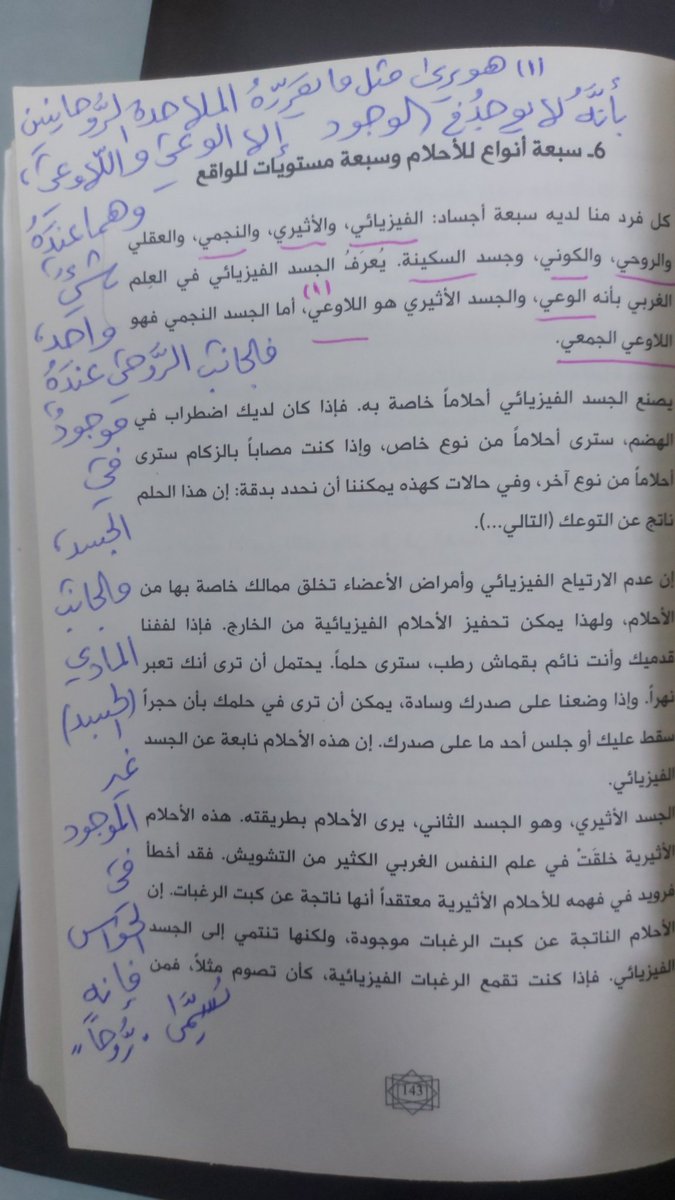 (١) هو يرى مثل ما يقرره الملاحدة الروحانيين
بأنَّهُ لا يوجدُ في الوجود إلا الوعي واللاوعي،
وهما عندَهُ
شيءٌ
واحد،
فالجانب الرَّوحي عندَهُ
موجودٌ
في
الجسد،
والجانب
المادي
(الجسد)
غير
الموجود
في
الحواس
فإنه
يُسمَّى رُّوحاً"
6ـ سبعة أنواع للأحلام وسبعة مستويات للواقع
كل فرد منا لديه سبعة أجساد: الفيزيائي، والأثيري، والنجمي، والعقلي
والروحي، والكوني، وجسد السكينة. يُعرَفُ الجسد الفيزيائي في العِلم
الغربي بأنه الوعي، والجسد الأثيري هو اللاوعي(١)، أما الجسد النجمي فهو
اللاوعي الجمعي.
يصنع الجسد الفيزيائي أحلاماً خاصة به. فإذا كان لديك اضطراب في
الهضم، سترى أحلاماً من نوع خاص، وإذا كنت مصاباً بالزكام سترى
أحلاماً من نوع آخر، وفي حالات كهذه يمكننا أن نحدد بدقة: إن هذا الحلم
ناتج عن التوعك (التالي...).
إن عدم الارتياح الفيزيائي وأمراض الأعضاء تخلق ممالك خاصة بها من
الأحلام، ولهذا يمكن تحفيز الأحلام الفيزيائية من الخارج. فإذا لففنا
قدميك وأنت نائم بقماش رطب، سترى حلماً. يحتمل أن ترى أنك تعبر
نهراً. وإذا وضعنا على صدرك وسادة، يمكن أن ترى في حلمك بأن حجراً
سقط عليك أو جلس أحد ما على صدرك. إن هذه الأحلام نابعة عن الجسد
الفيزيائي.
الجسد الأثيري، وهو الجسد الثاني، يرى الأحلام بطريقته. هذه الأحلام
الأثيرية خلقَتْ في علم النفس الغربي الكثير من التشويش. فقد أخطأ
فرويد في فهمه للأحلام الأثيرية معتقداً أنها ناتجة عن كبت الرغبات. إن
الأحلام الناتجة عن كبت الرغبات موجودة، ولكنها تنتمي إلى الجسد
الفيزيائي. فإذا كنت تقمع الرغبات الفيزيائية، كأن تصوم مثلاً، فمن
143